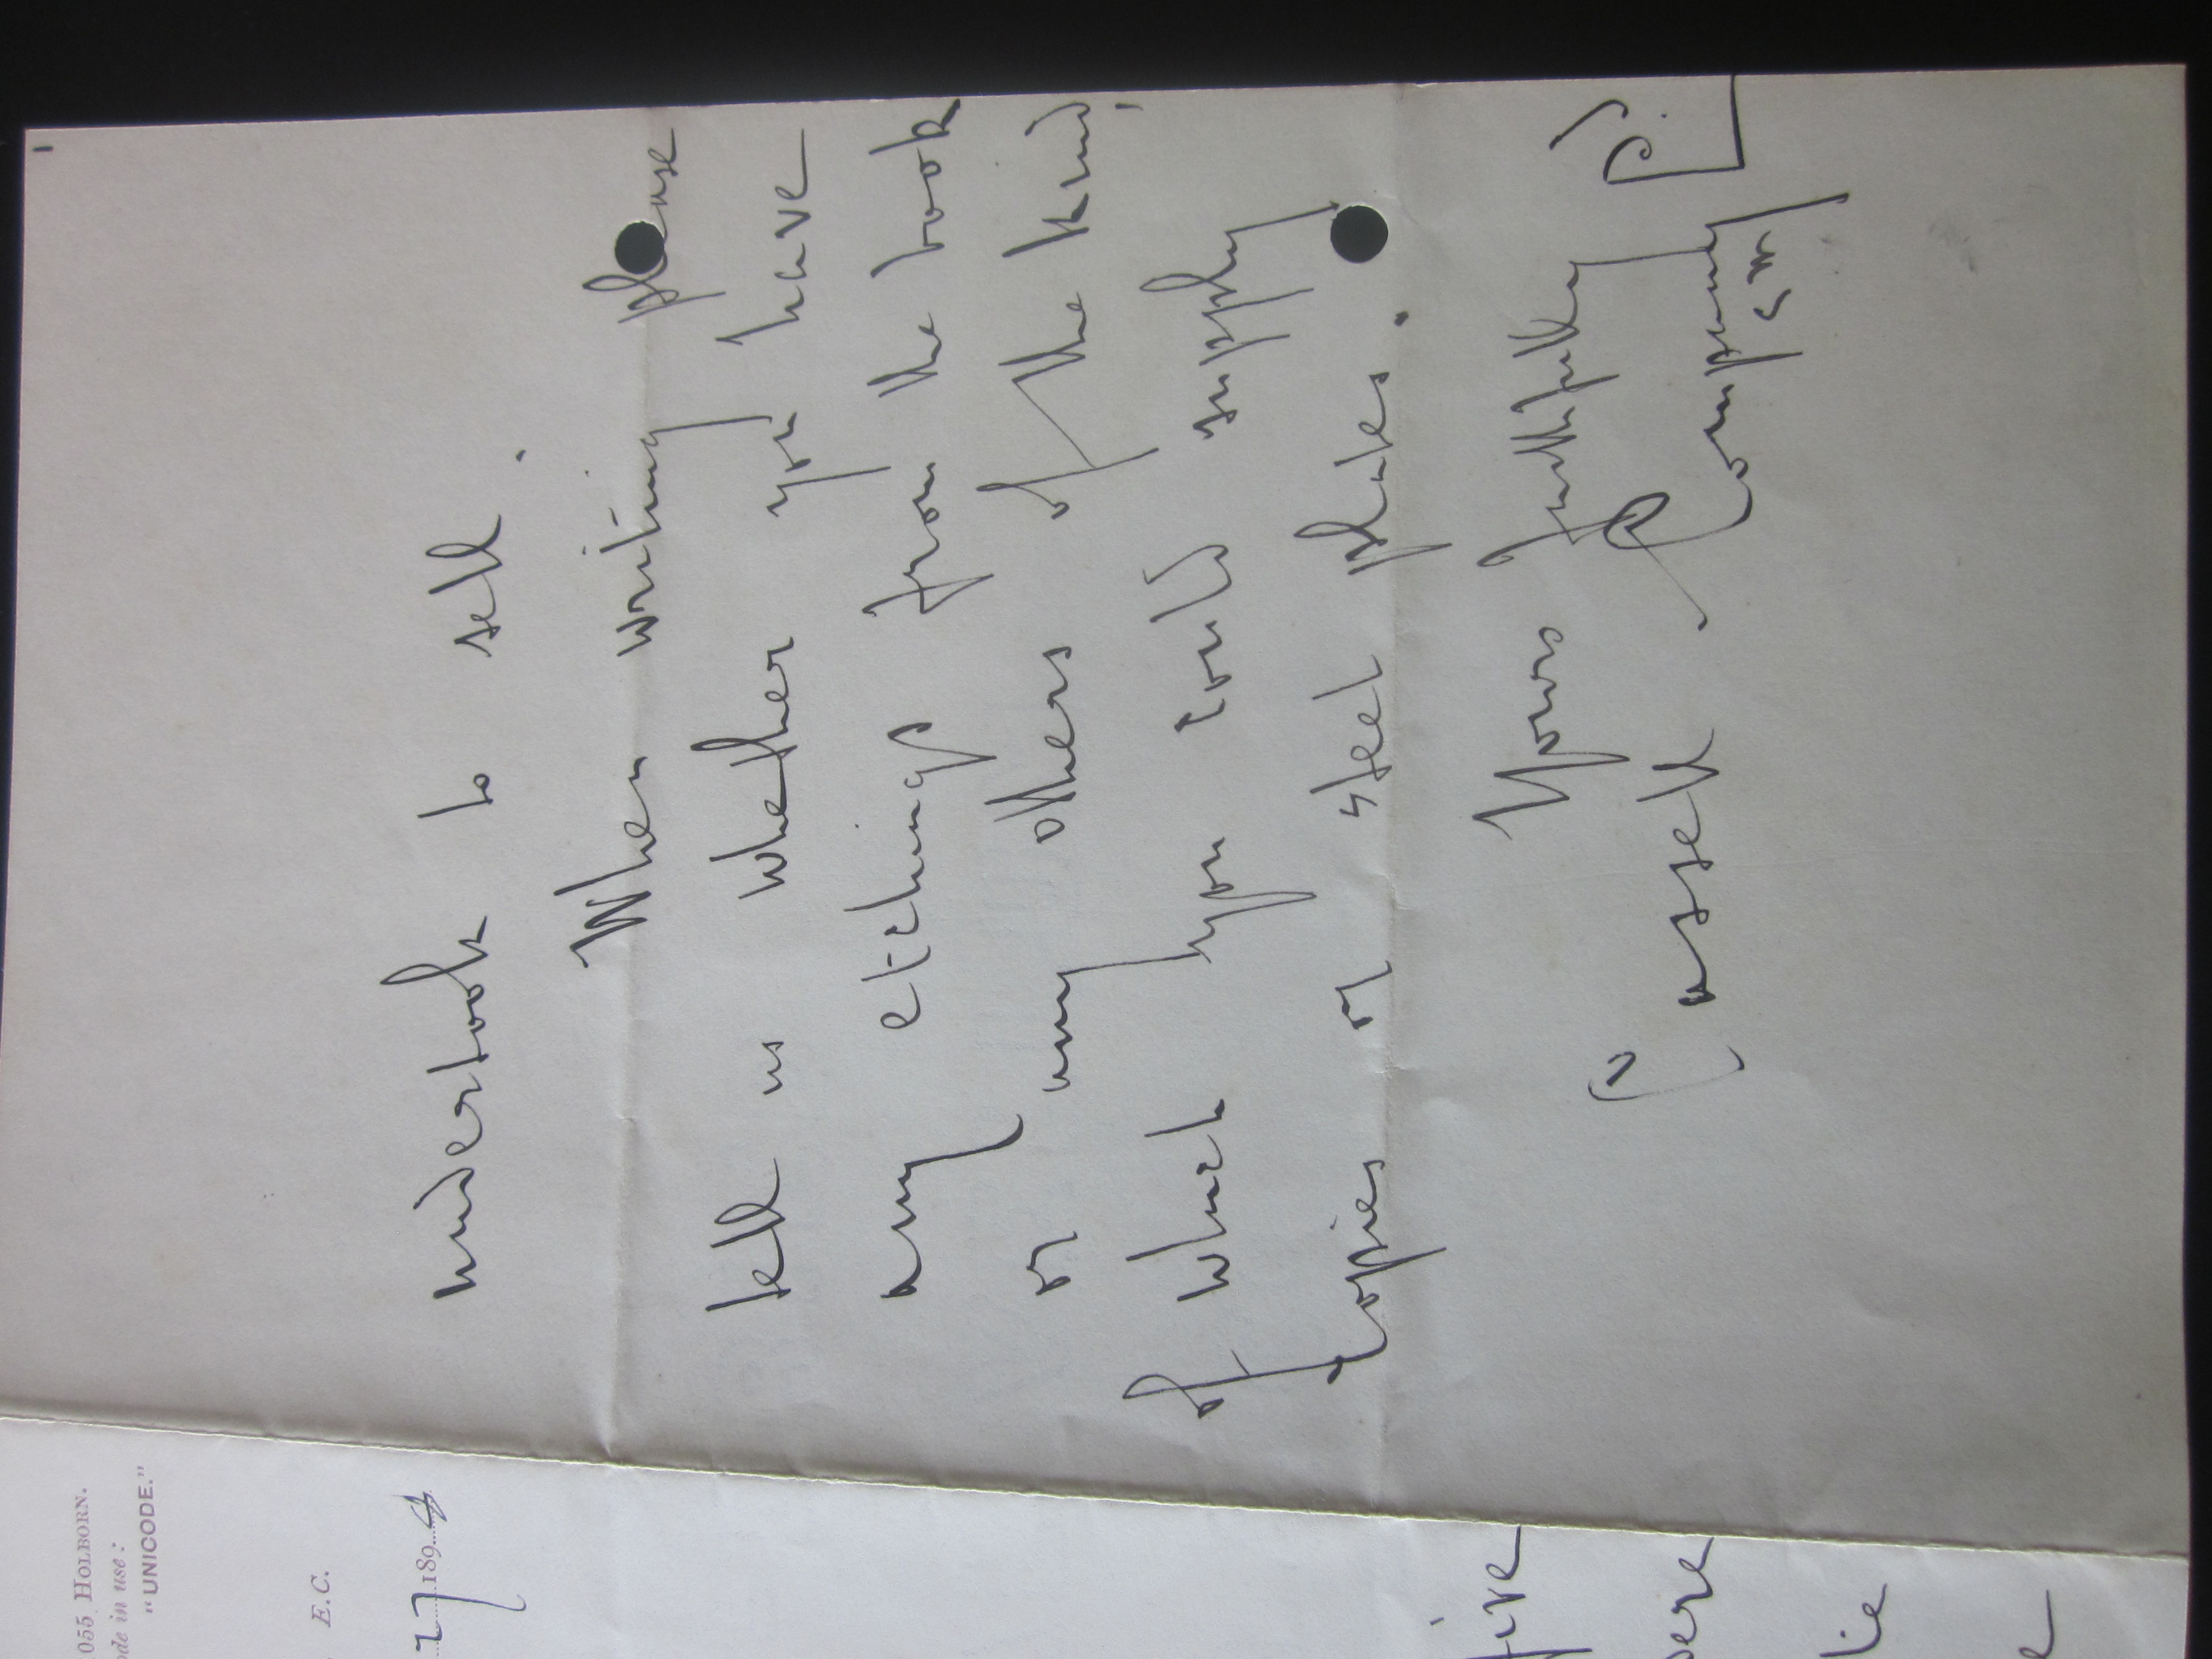 055 HOLBORN.
ode in use:
"UNICODE."
E.C.
27 189
undertook to sell.
When writing please
tell us whether you have
any etchings from the book
or any others of the kind,
of which you could supply
copies or steel plates.
Yours faithfully
Cassell & Company Ld
five
ere
te
e